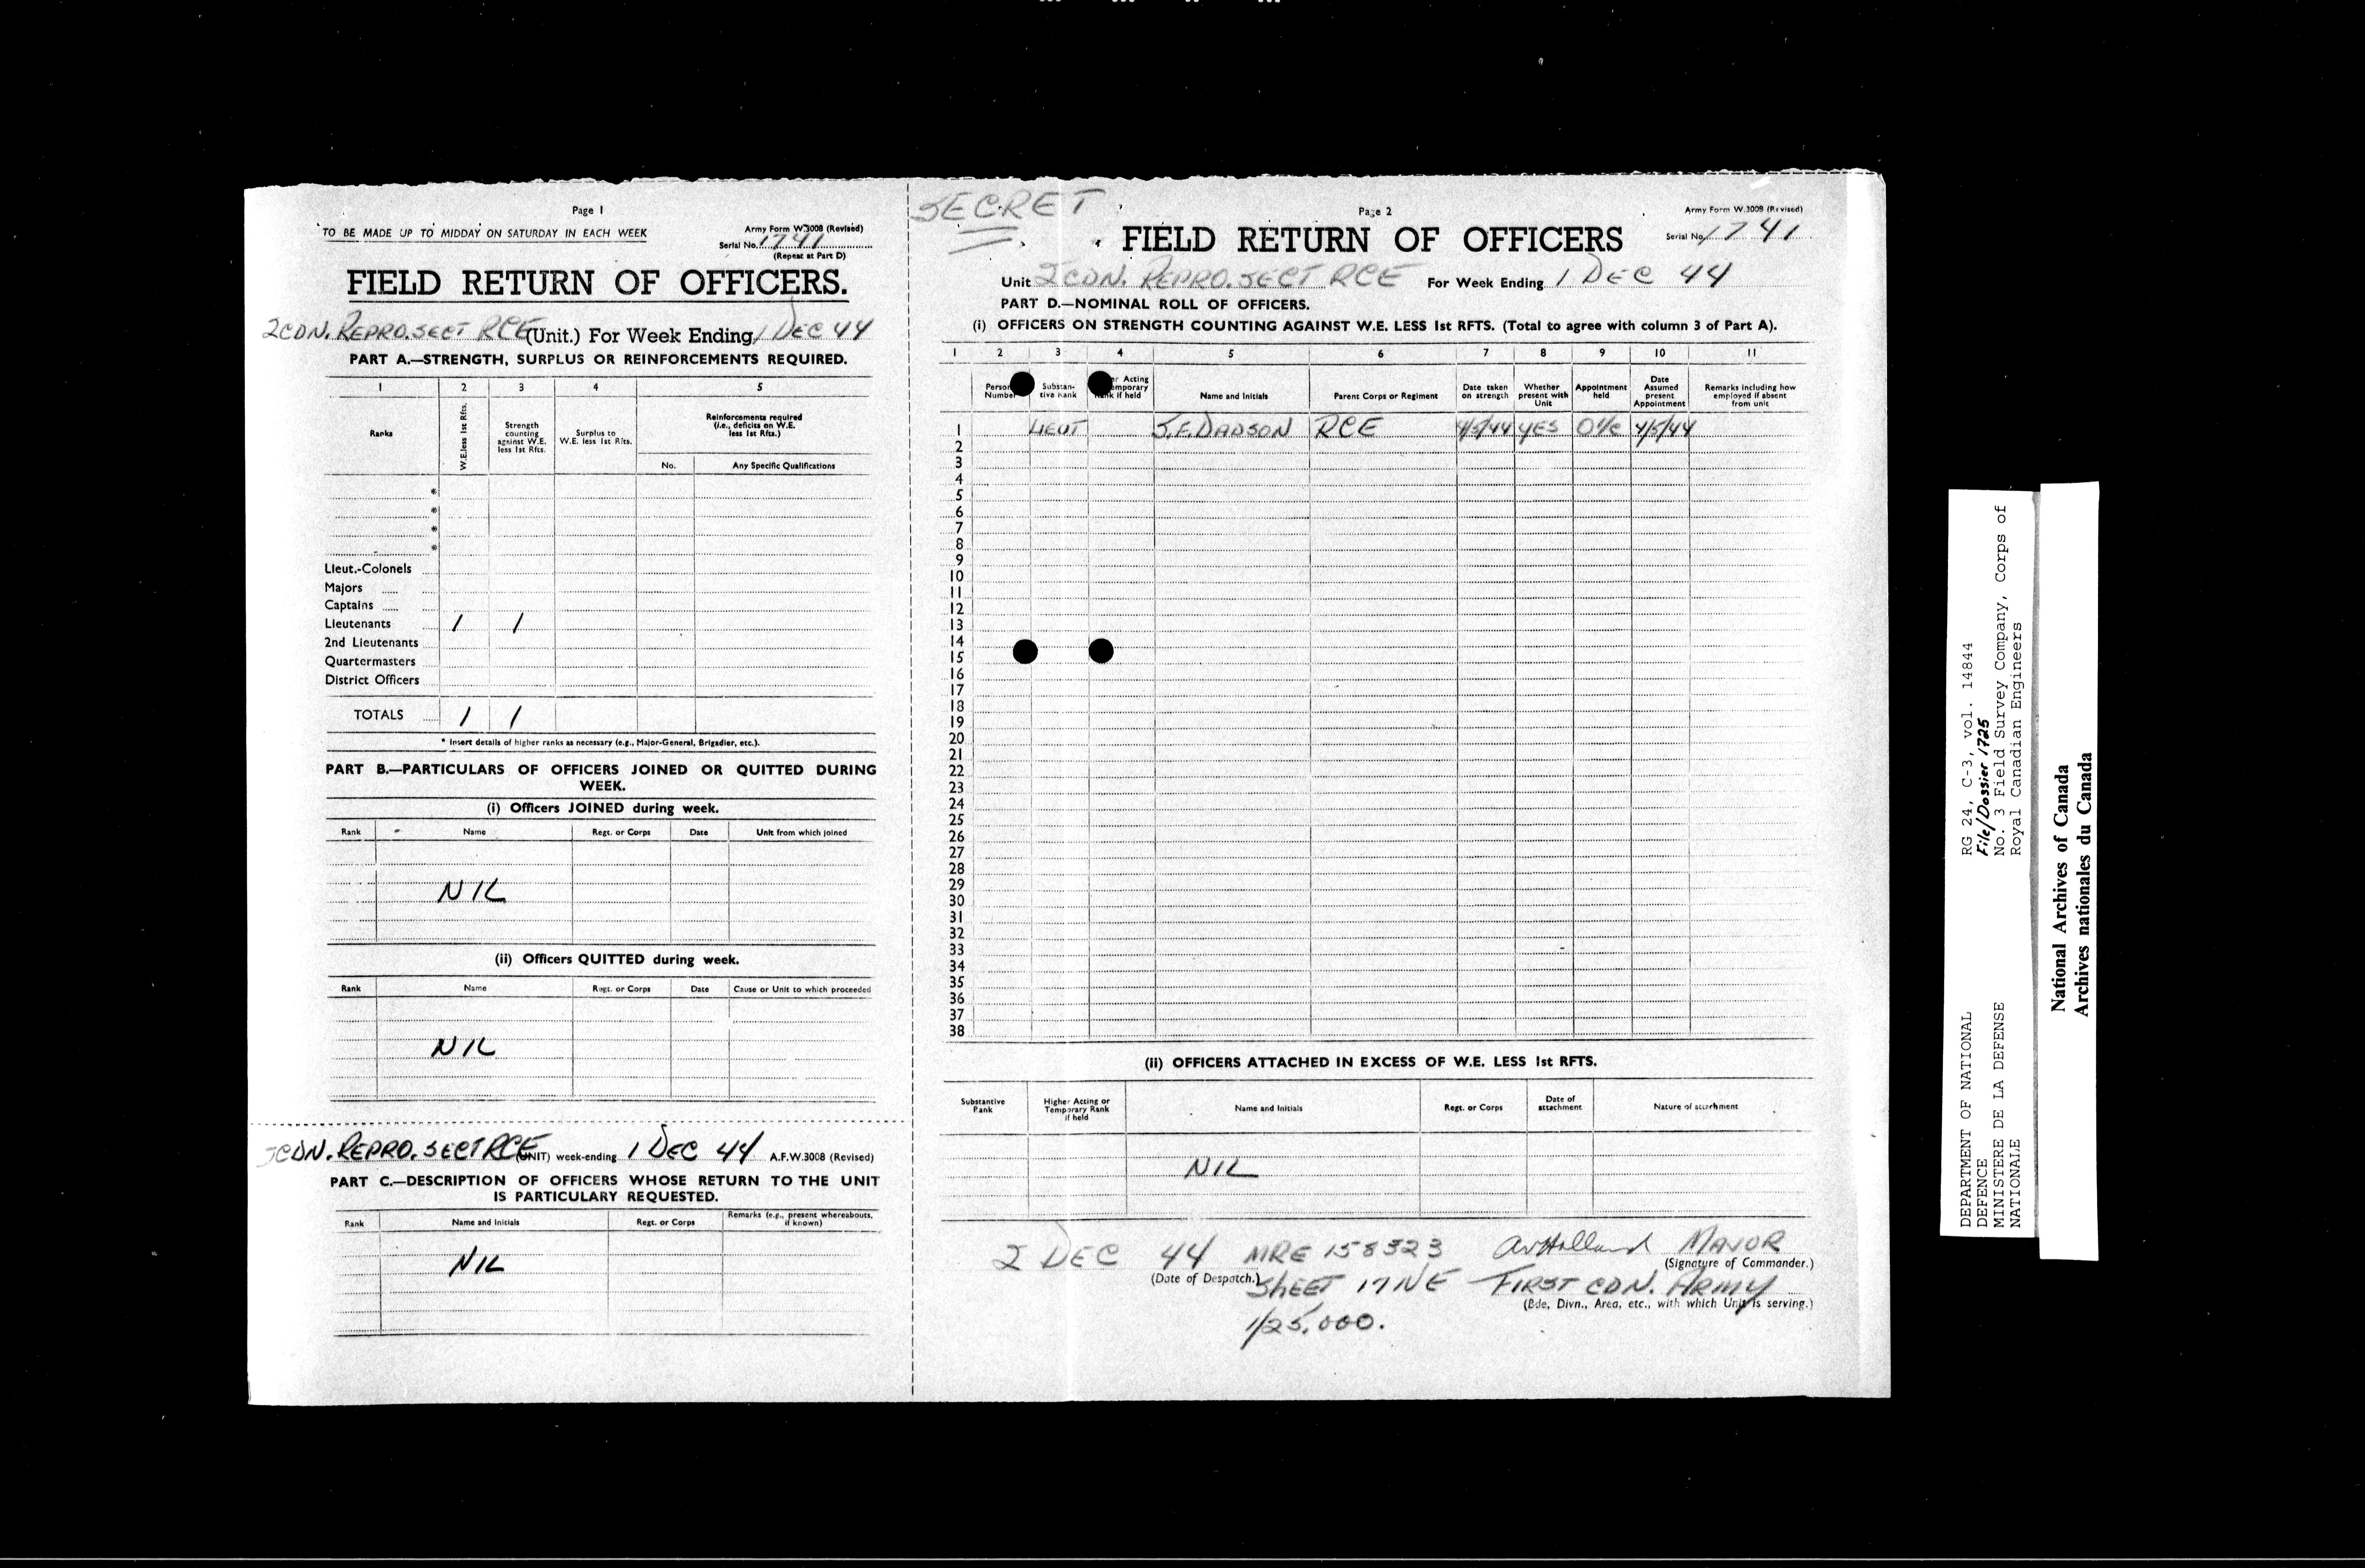 Page 1
TO BE MADE UP TO MIDDAY ON SATURDAY IN EACH WEEK
Army Form W.3008 (Revised)
Serial No. 1741
(Repeat at Part D)
FIELD RETURN OF OFFICERS.
2 CDN. REPRO. SECT RCE (Unit.) For Week Ending 1 DEC 44
PART A.—STRENGTH, SURPLUS OR REINFORCEMENTS REQUIRED.
1 2 3 4 5
Ranks
W.E. less 1st Rfts.
Strength counting against W.E. less 1st Rfts.
Surplus to W.E. less 1st Rfts.
Reinforcements required (i.e., deficits on W.E. less 1st Rfts.)
No. Any Specific Qualifications
*
*
*
*
Lieut.-Colonels
Majors
Captains
Lieutenants 1 1
2nd Lieutenants
Quartermasters
District Officers
TOTALS 1 1
* Insert details of higher ranks as necessary (e.g., Major-General, Brigadier, etc.).
PART B.—PARTICULARS OF OFFICERS JOINED OR QUITTED DURING
WEEK.
(i) Officers JOINED during week.
Rank Name Regt. or Corps Date Unit from which joined
NIL
(ii) Officers QUITTED during week.
Rank Name Regt. or Corps Date Cause or Unit to which proceeded
NIL
2CDN. REPRO. SECT RCE (UNIT) week-ending 1 DEC 44 A.F.W.3008 (Revised)
PART C.—DESCRIPTION OF OFFICERS WHOSE RETURN TO THE UNIT
IS PARTICULARY REQUESTED.
Rank Name and Initials Regt. or Corps Remarks (e.g., present whereabouts, if known)
NIL
SECRET
Page 2
Army Form W.3008 (Revised)
Serial No. 1741
FIELD RETURN OF OFFICERS
Unit 2 CDN. REPRO. SECT RCE For Week Ending 1 DEC 44
PART D.—NOMINAL ROLL OF OFFICERS.
(i) OFFICERS ON STRENGTH COUNTING AGAINST W.E. LESS 1st RFTS. (Total to agree with column 3 of Part A).
1 2 3 4 5 6 7 8 9 10 11
Person Number
Substantive Rank
Acting Rank if held
Name and Initials
Parent Corps or Regiment
Date taken on strength
Whether present with Unit
Appointment held
Date Assumed present Appointment
Remarks including how employed if absent from unit
1 LIEUT J.F. DADSON RCE 4/5/44 YES O i/c 4/5/44
2
3
4
5
6
7
8
9
10
11
12
13
14
15
16
17
18
19
20
21
22
23
24
25
26
27
28
29
30
31
32
33
34
35
36
37
38
(ii) OFFICERS ATTACHED IN EXCESS OF W.E. LESS 1st RFTS.
Substantive Rank
Higher Acting or Temporary Rank if held
Name and Initials
Regt. or Corps
Date of attachment
Nature of attachment
NIL
2 DEC 44 MRE 158323 Holland MAJOR
(Date of Despatch.) (Signature of Commander.)
SHEET 17 NE FIRST CDN. ARMY
(Bde, Divn., Area, etc., with which Unit is serving.)
1/25,000.
DEPARTMENT OF NATIONAL
DEFENCE
MINISTERE DE LA DEFENSE
NATIONALE
RG 24, C-3, vol. 14844
File/Dossier 1725
No. 3 Field Survey Company, Corps of
Royal Canadian Engineers
National Archives of Canada
Archives nationales du Canada